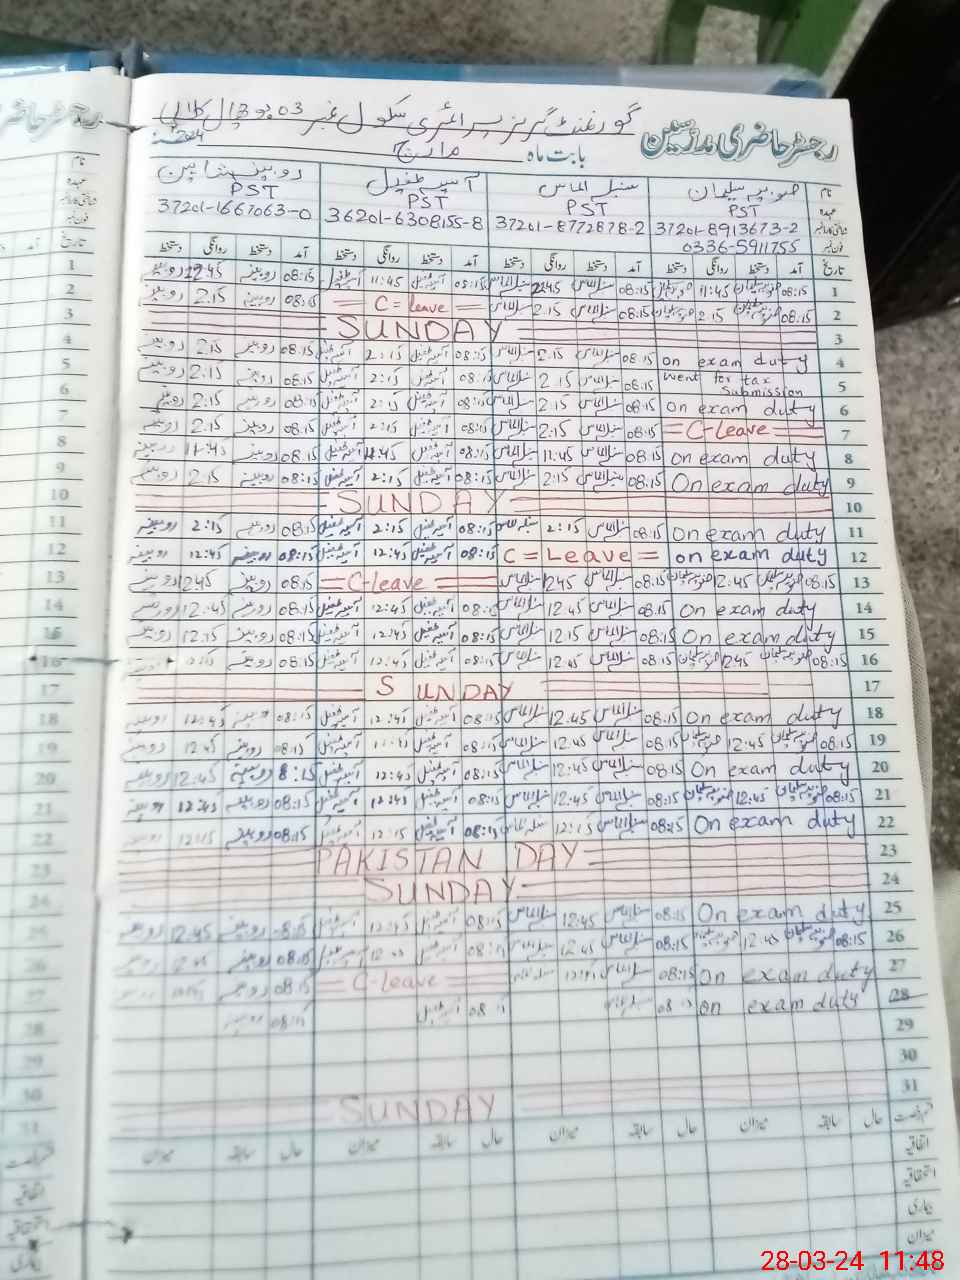 رجسٹر حاضری مدرسین گورنمنٹ گرلز پرائمری سکول نمبر 03 بوچھال کلاں
بابت ماہ مارچ 2024
نام صوبیہ سلیمان سنبل الماس آسیہ طفیل روبینہ شاہین
عہدہ PST PST PST PST
37201-8913673-2 37201-8772878-2 36201-6308155-8 37201-1667063-0
فون نمبر 0336-5911755
تاریخ آمد دستخط روانگی دستخط آمد دستخط روانگی دستخط آمد دستخط روانگی دستخط آمد دستخط روانگی دستخط
1 08:15 صوبیہ سلیمان 11:45 08:15 سنبل الماس سنبل الماس 08:15 آسیہ طفیل 11:45 آسیہ طفیل 08:15 روبینہ روبینہ
2 08:15 صوبیہ سلیمان 2:15 صوبیہ سلیمان 08:15 سنبل الماس 2:15 سنبل الماس = C = leave = 08:15 روبینہ 2:15 روبینہ
3 SUNDAY
4 on exam duty 08:15 سنبل الماس 2:15 سنبل الماس 08:15 آسیہ طفیل 2:15 آسیہ طفیل 08:15 روبینہ 2:15 روبینہ
5 Went for tax Submission 08:15 سنبل الماس 2:15 سنبل الماس 08:15 آسیہ طفیل 2:15 آسیہ طفیل 08:15 روبینہ 2:15 روبینہ
6 On exam duty 08:15 سنبل الماس 2:15 سنبل الماس 08:15 آسیہ طفیل 2:15 آسیہ طفیل 08:15 روبینہ 2:15 روبینہ
7 = C-leave = 08:15 سنبل الماس 2:15 سنبل الماس 08:15 آسیہ طفیل 2:15 آسیہ طفیل 08:15 روبینہ 2:15 روبینہ
8 On exam duty 08:15 سنبل الماس 11:45 سنبل الماس 08:15 آسیہ طفیل 11:45 آسیہ طفیل 08:15 روبینہ 11:45 روبینہ
9 On exam duty 08:15 سنبل الماس 2:15 سنبل الماس 08:15 آسیہ طفیل 2:15 آسیہ طفیل 08:15 روبینہ 2:15 روبینہ
10 SUNDAY
11 On exam duty 08:15 سنبل الماس 2:15 سنبل الماس 08:15 آسیہ طفیل 2:15 آسیہ طفیل 08:15 روبینہ 2:15 روبینہ
12 on exam duty C = Leave = 08:15 آسیہ طفیل 12:45 آسیہ طفیل 08:15 روبینہ 12:45 روبینہ
13 08:15 صوبیہ سلیمان 12:45 صوبیہ سلیمان 08:15 سنبل الماس 12:45 سنبل الماس = C-leave = 08:15 روبینہ 12:45 روبینہ
14 On exam duty 08:15 سنبل الماس 12:45 سنبل الماس 08:15 آسیہ طفیل 12:45 آسیہ طفیل 08:15 روبینہ 12:45 روبینہ
15 On exam duty 08:15 سنبل الماس 12:15 سنبل الماس 08:15 آسیہ طفیل 12:45 آسیہ طفیل 08:15 روبینہ 12:15 روبینہ
16 08:15 صوبیہ سلیمان 12:45 صوبیہ سلیمان 08:15 سنبل الماس 12:45 سنبل الماس 08:15 آسیہ طفیل 12:45 آسیہ طفیل 08:15 روبینہ
17 SUNDAY
18 On exam duty 08:15 سنبل الماس 12:45 سنبل الماس 08:15 آسیہ طفیل 12:45 آسیہ طفیل 08:15 روبینہ 12:45 روبینہ
19 08:15 صوبیہ سلیمان 12:45 صوبیہ سلیمان 08:15 سنبل الماس 12:45 سنبل الماس 08:15 آسیہ طفیل آسیہ طفیل 08:15 روبینہ 12:45 روبینہ
20 On exam duty 08:15 سنبل الماس 12:45 سنبل الماس 08:15 آسیہ طفیل 12:45 آسیہ طفیل 8:15 روبینہ 12:45 روبینہ
21 08:15 صوبیہ سلیمان 12:45 صوبیہ سلیمان 08:15 سنبل الماس 12:45 سنبل الماس 08:15 آسیہ طفیل 12:45 آسیہ طفیل 08:15 روبینہ 12:45 روبینہ
22 On exam duty 08:15 سنبل الماس 12:15 سنبل الماس 08:15 آسیہ طفیل 12:15 آسیہ طفیل 08:15 روبینہ 12:15
23 PAKISTAN DAY
24 SUNDAY
25 On exam duty 08:15 سنبل الماس 12:45 سنبل الماس 08:15 آسیہ طفیل 12:45 آسیہ طفیل 08:15 روبینہ 12:45 روبینہ
26 08:15 صوبیہ سلیمان 12:45 08:15 سنبل الماس 12:45 سنبل الماس 08:15 آسیہ طفیل 12:45 آسیہ طفیل 08:15 روبینہ 12:45 روبینہ
27 On exam duty 08:15 سنبل الماس = C-leave = 08:15 روبینہ
28 On exam duty 08:15 آسیہ طفیل 08:15 روبینہ
29
30
31 SUNDAY
قسم رخصت حال سابقہ میزان حال سابقہ میزان حال سابقہ میزان حال سابقہ میزان
اتفاقیہ
استحقاقیہ
بیماری
میزان
28-03-24 11:48